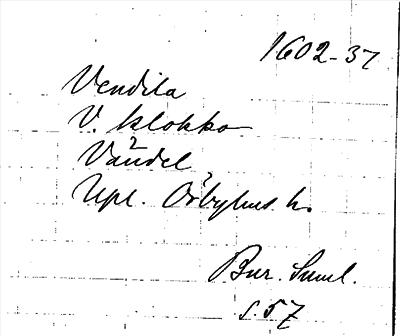 1602-37
Vendila
V. klokko
Vändel
Upl. Örbyhus h.
Bur. Suml.
s. 57